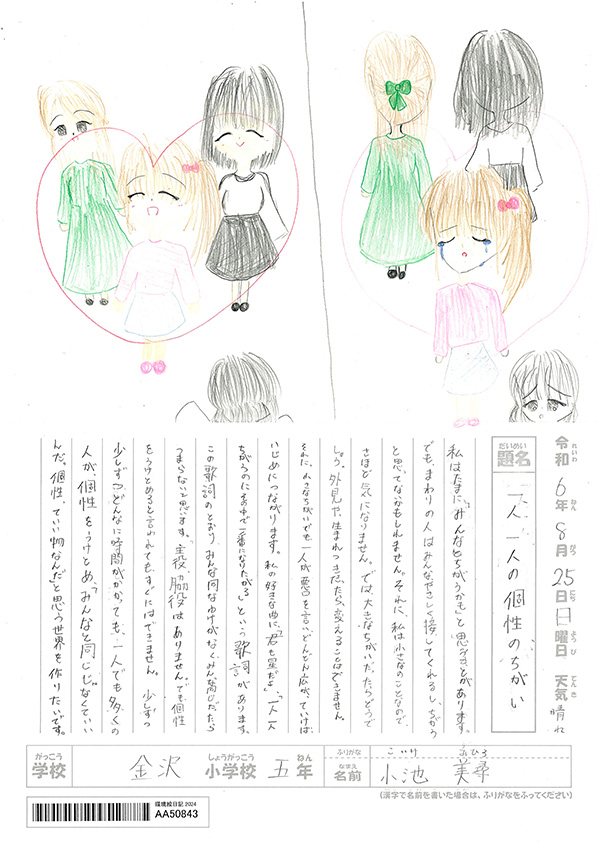 令和6年8月25日日曜日 天気 晴れ
れいわ ねん がつ にち ようび てんき
だいめい
題名 一人一人の個性のちがい
私はたまに「みんなとちがうかも」と思うときがあります。
でも、まわりの人はみんなやさしく接してくれるし、ちがう
と思てないかもしれません。それに、私は小さなのことなので、
さほど気になりません。では、大きなちがいだったらどうで
しょう。外見や、生まれつきだったら、変えることはできません。
それに、小さなちがいでも一人が悪を言い、どんどん広がっていけば、
いじめにつながります。私の好きな曲に、「君も星だよ」、「一人一人
ちがうのにその中で一番になりたがる」という歌詞があります。
この歌詞のとおり、みんな同なわけがなく、みんな同じだったら
つまらないと思ます。主役、脇役はありません。でも個性
をうけとめると言われてもすぐにはできません。少しずつ
少しずつ、どんなに時間がかかっても、一人でも多くの
人が、個性をうけとめ、「みんなと同じじゃなくていい
んだ。個性っていい物なんだ」と思う世界を作りたいです。
がっこう しょうがっこう ねん
学校 金沢 小学校 五年
ふりがな こいけ みひろ
なまえ
名前 小池 美尋
(漢字で名前を書いた場合は、ふりがなをふってください)
環境絵日記 2024
AA50843